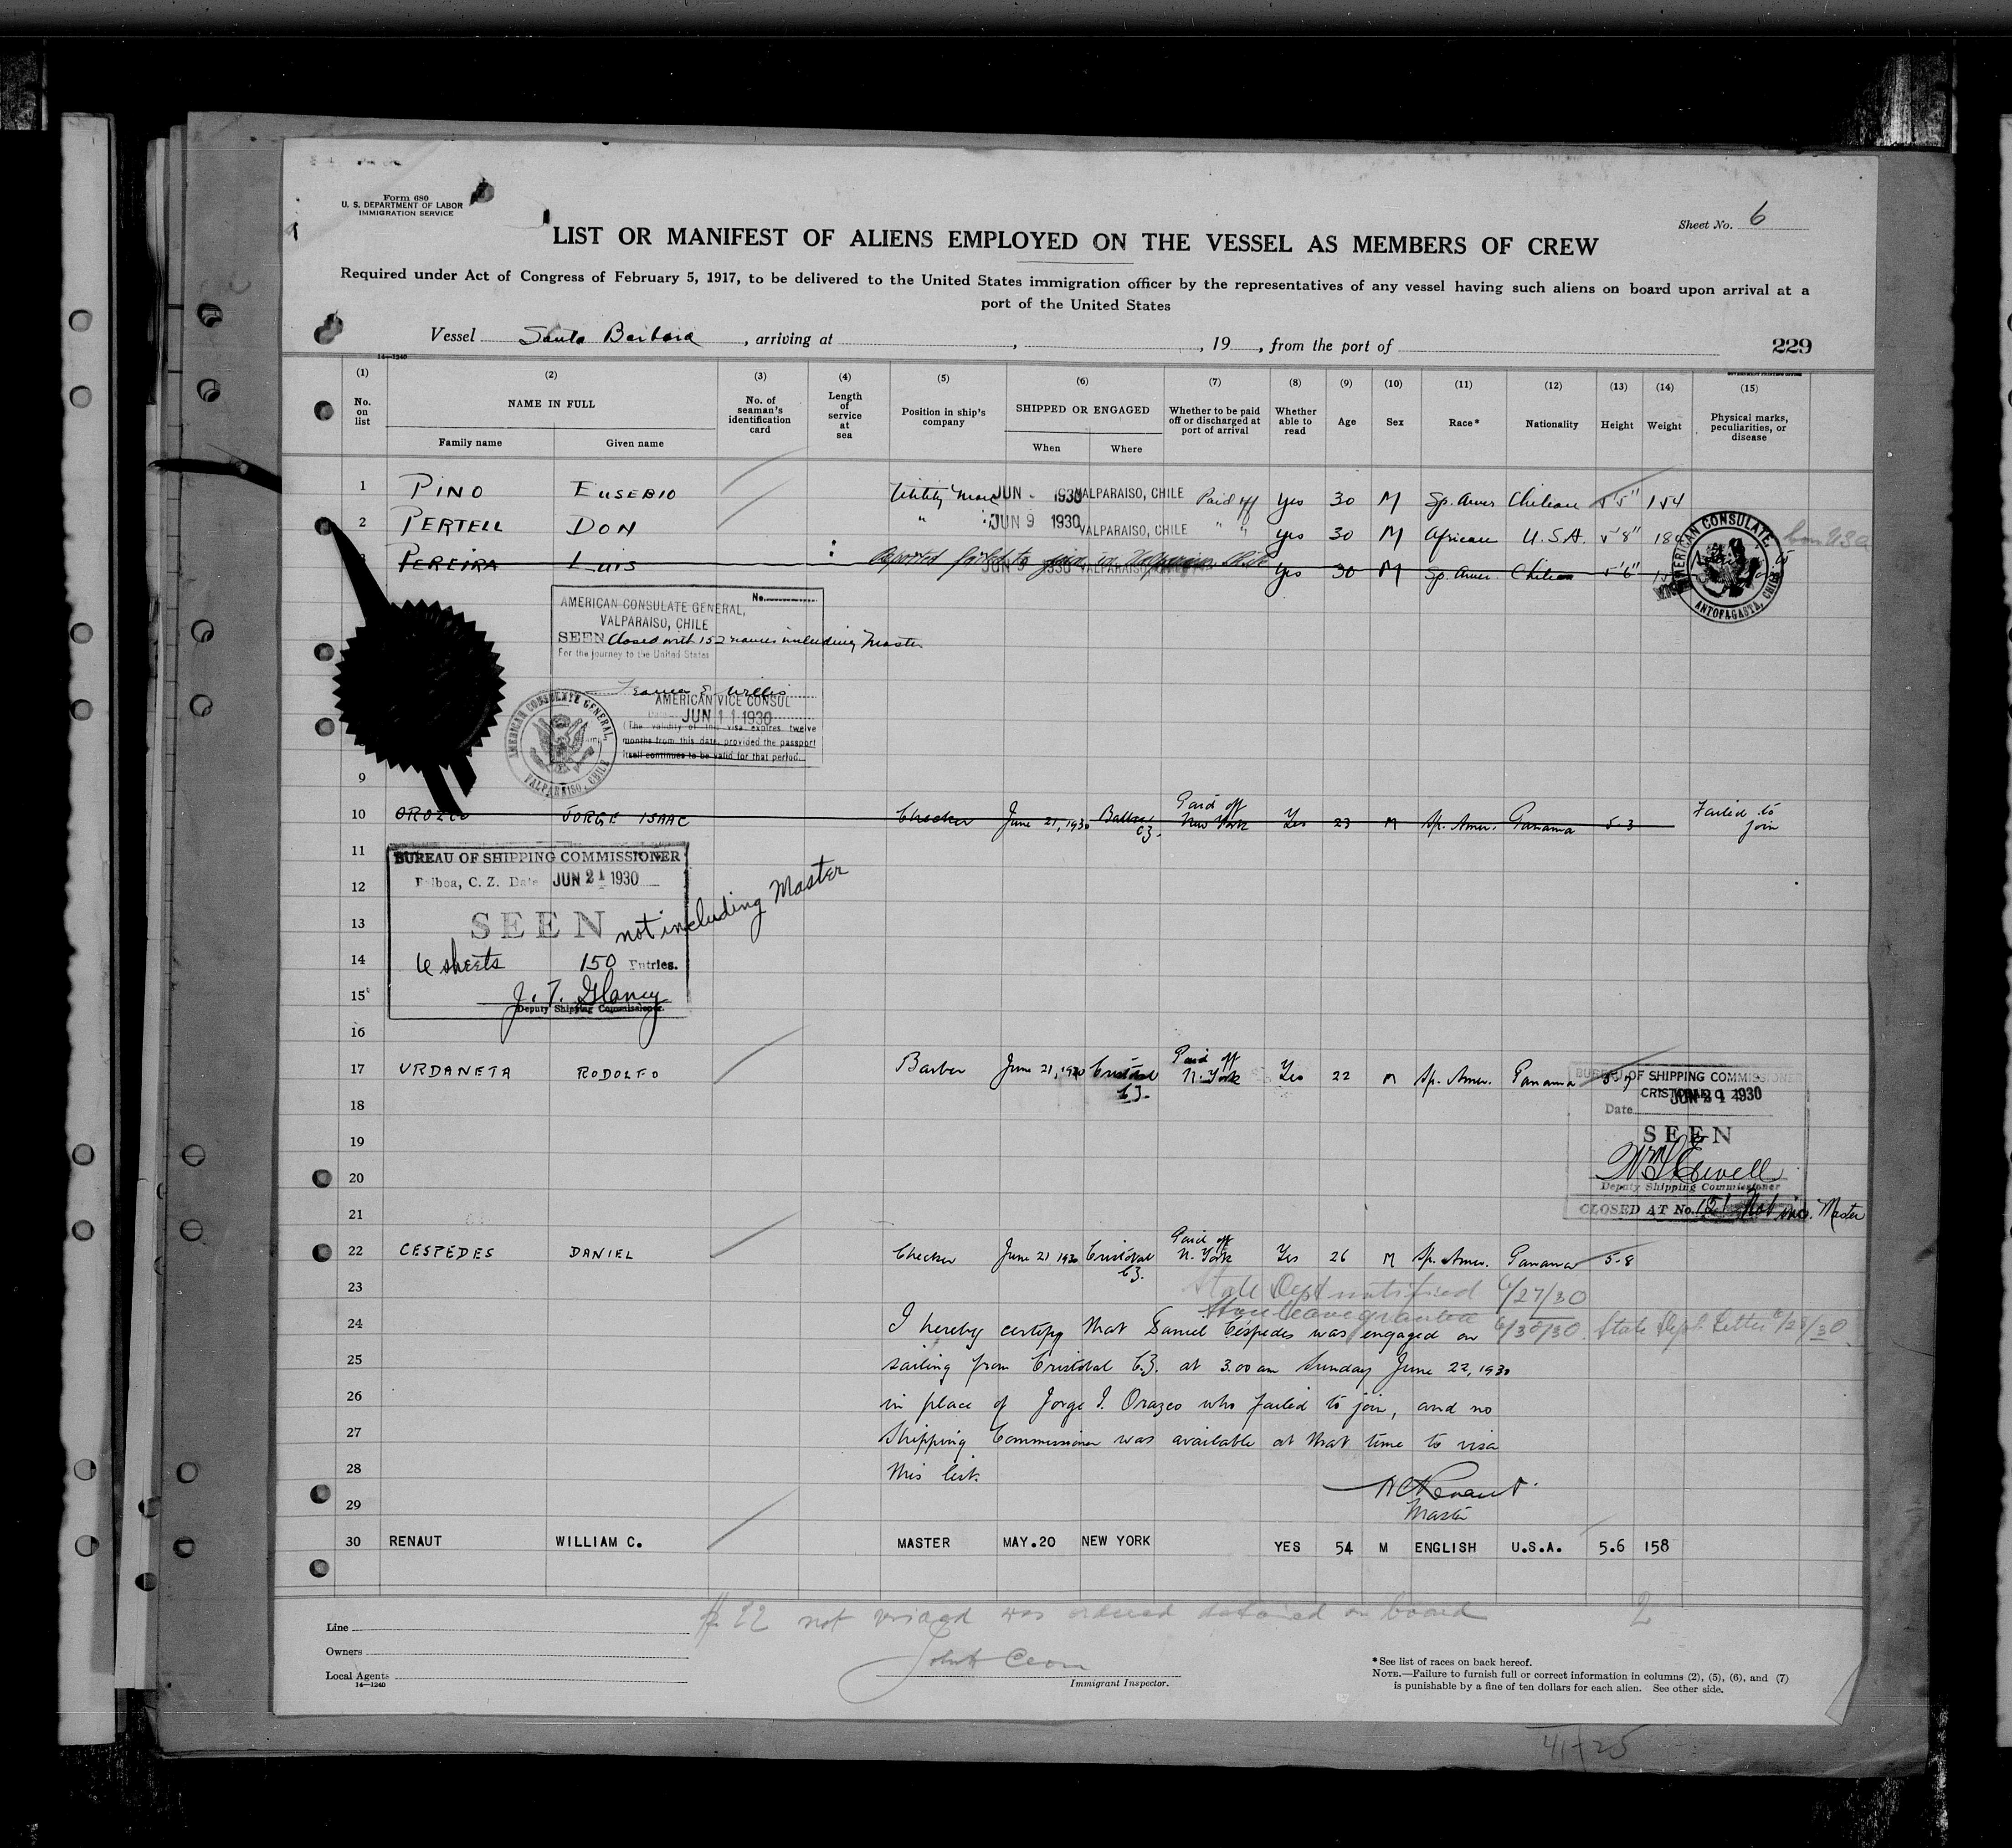 Form 680
U. S. DEPARTMENT OF LABOR
IMMIGRATION SERVICE
Sheet No. 6
LIST OR MANIFEST OF ALIENS EMPLOYED ON THE VESSEL AS MEMBERS OF CREW
Required under Act of Congress of February 5, 1917, to be delivered to the United States immigration officer by the representatives of any vessel having such aliens on board upon arrival at a
port of the United States
Vessel Santa Barbara, arriving at , , 19 , from the port of
229
14—1240
(1) (2) (3) (4) (5) (6) (7) (8) (9) (10) (11) (12) (13) (14) (15)
No. on list
NAME IN FULL
Family name Given name
No. of seaman's identification card
Length of service at sea
Position in ship's company
SHIPPED OR ENGAGED
When Where
Whether to be paid off or discharged at port of arrival
Whether able to read
Age
Sex
Race*
Nationality
Height
Weight
Physical marks, peculiarities, or disease
1 PINO EUSEBIO Utility man JUN 1930 VALPARAISO, CHILE Paid off Yes 30 M Sp. Amer Chilean 5'5" 154
2 PERTELL DON " " JUN 9 1930 VALPARAISO, CHILE " " Yes 30 M African U.S.A. 5'8"
PEREIRA LUIS Deported failed to join in Valparaiso, Chile Yes 30 M Sp. Amer. Chilean 5'6"
AMERICAN CONSULATE
ANTOFAGASTA, CHILE
No.
AMERICAN CONSULATE GENERAL,
VALPARAISO, CHILE
SEEN Closed with 152 names including Master
For the journey to the United States
Willis
AMERICAN VICE CONSUL
JUN 11 1930
(The validity of this visa expires twelve
months from this date, provided the passport
itself continues to be valid for that period.
AMERICAN CONSULATE GENERAL,
VALPARAISO, CHILE
9
10 OROZCO JORGE ISAAC Checker June 21, 1930 Balboa CZ. Paid off New York Yes 23 M Sp. Amer. Panama 5-3 Failed to join
11
BUREAU OF SHIPPING COMMISSIONER
Balboa, C. Z. Date JUN 21 1930
12
SEEN not including Master
13
14
6 sheets 150 Entries.
15
J. T. Glancy
Deputy Shipping Commissioner.
16
17 URDANETA RODOLFO Barber June 21, 1930 Cristobal C.Z. Paid off N. York Yes 22 M Sp. Amer. Panama 5-7
BUREAU OF SHIPPING COMMISSIONER
JUN 21 1930
Date
SEEN
Deputy Shipping Commissioner
CLOSED AT No. 151 Not inc. Master
18
19
20
21
22 CESPEDES DANIEL Checker June 21 1930 Cristobal C.Z. Paid off N. York Yes 26 M Sp. Amer. Panama 5-8
23 State Dept notified 6/27/30
Shore leave granted 6/30/30. State Dept. Letter 6/28/30
24 I hereby certify that Daniel Cespedes was engaged on
25 sailing from Cristobal C.Z. at 3.00 am Sunday June 22, 1930
26 in place of Jorge I. Orazco who failed to join, and no
27 Shipping Commissioner was available at that time to visa
28 this list.
29 WCRenaut.
Master
30 RENAUT WILLIAM C. MASTER MAY.20 NEW YORK YES 54 M ENGLISH U.S.A. 5.6 158
# 22 not visaed was ordered detained on board 2
Line
Owners
Local Agents
14—1240
Immigrant Inspector.
*See list of races on back hereof.
NOTE.—Failure to furnish full or correct information in columns (2), (5), (6), and (7)
is punishable by a fine of ten dollars for each alien. See other side.